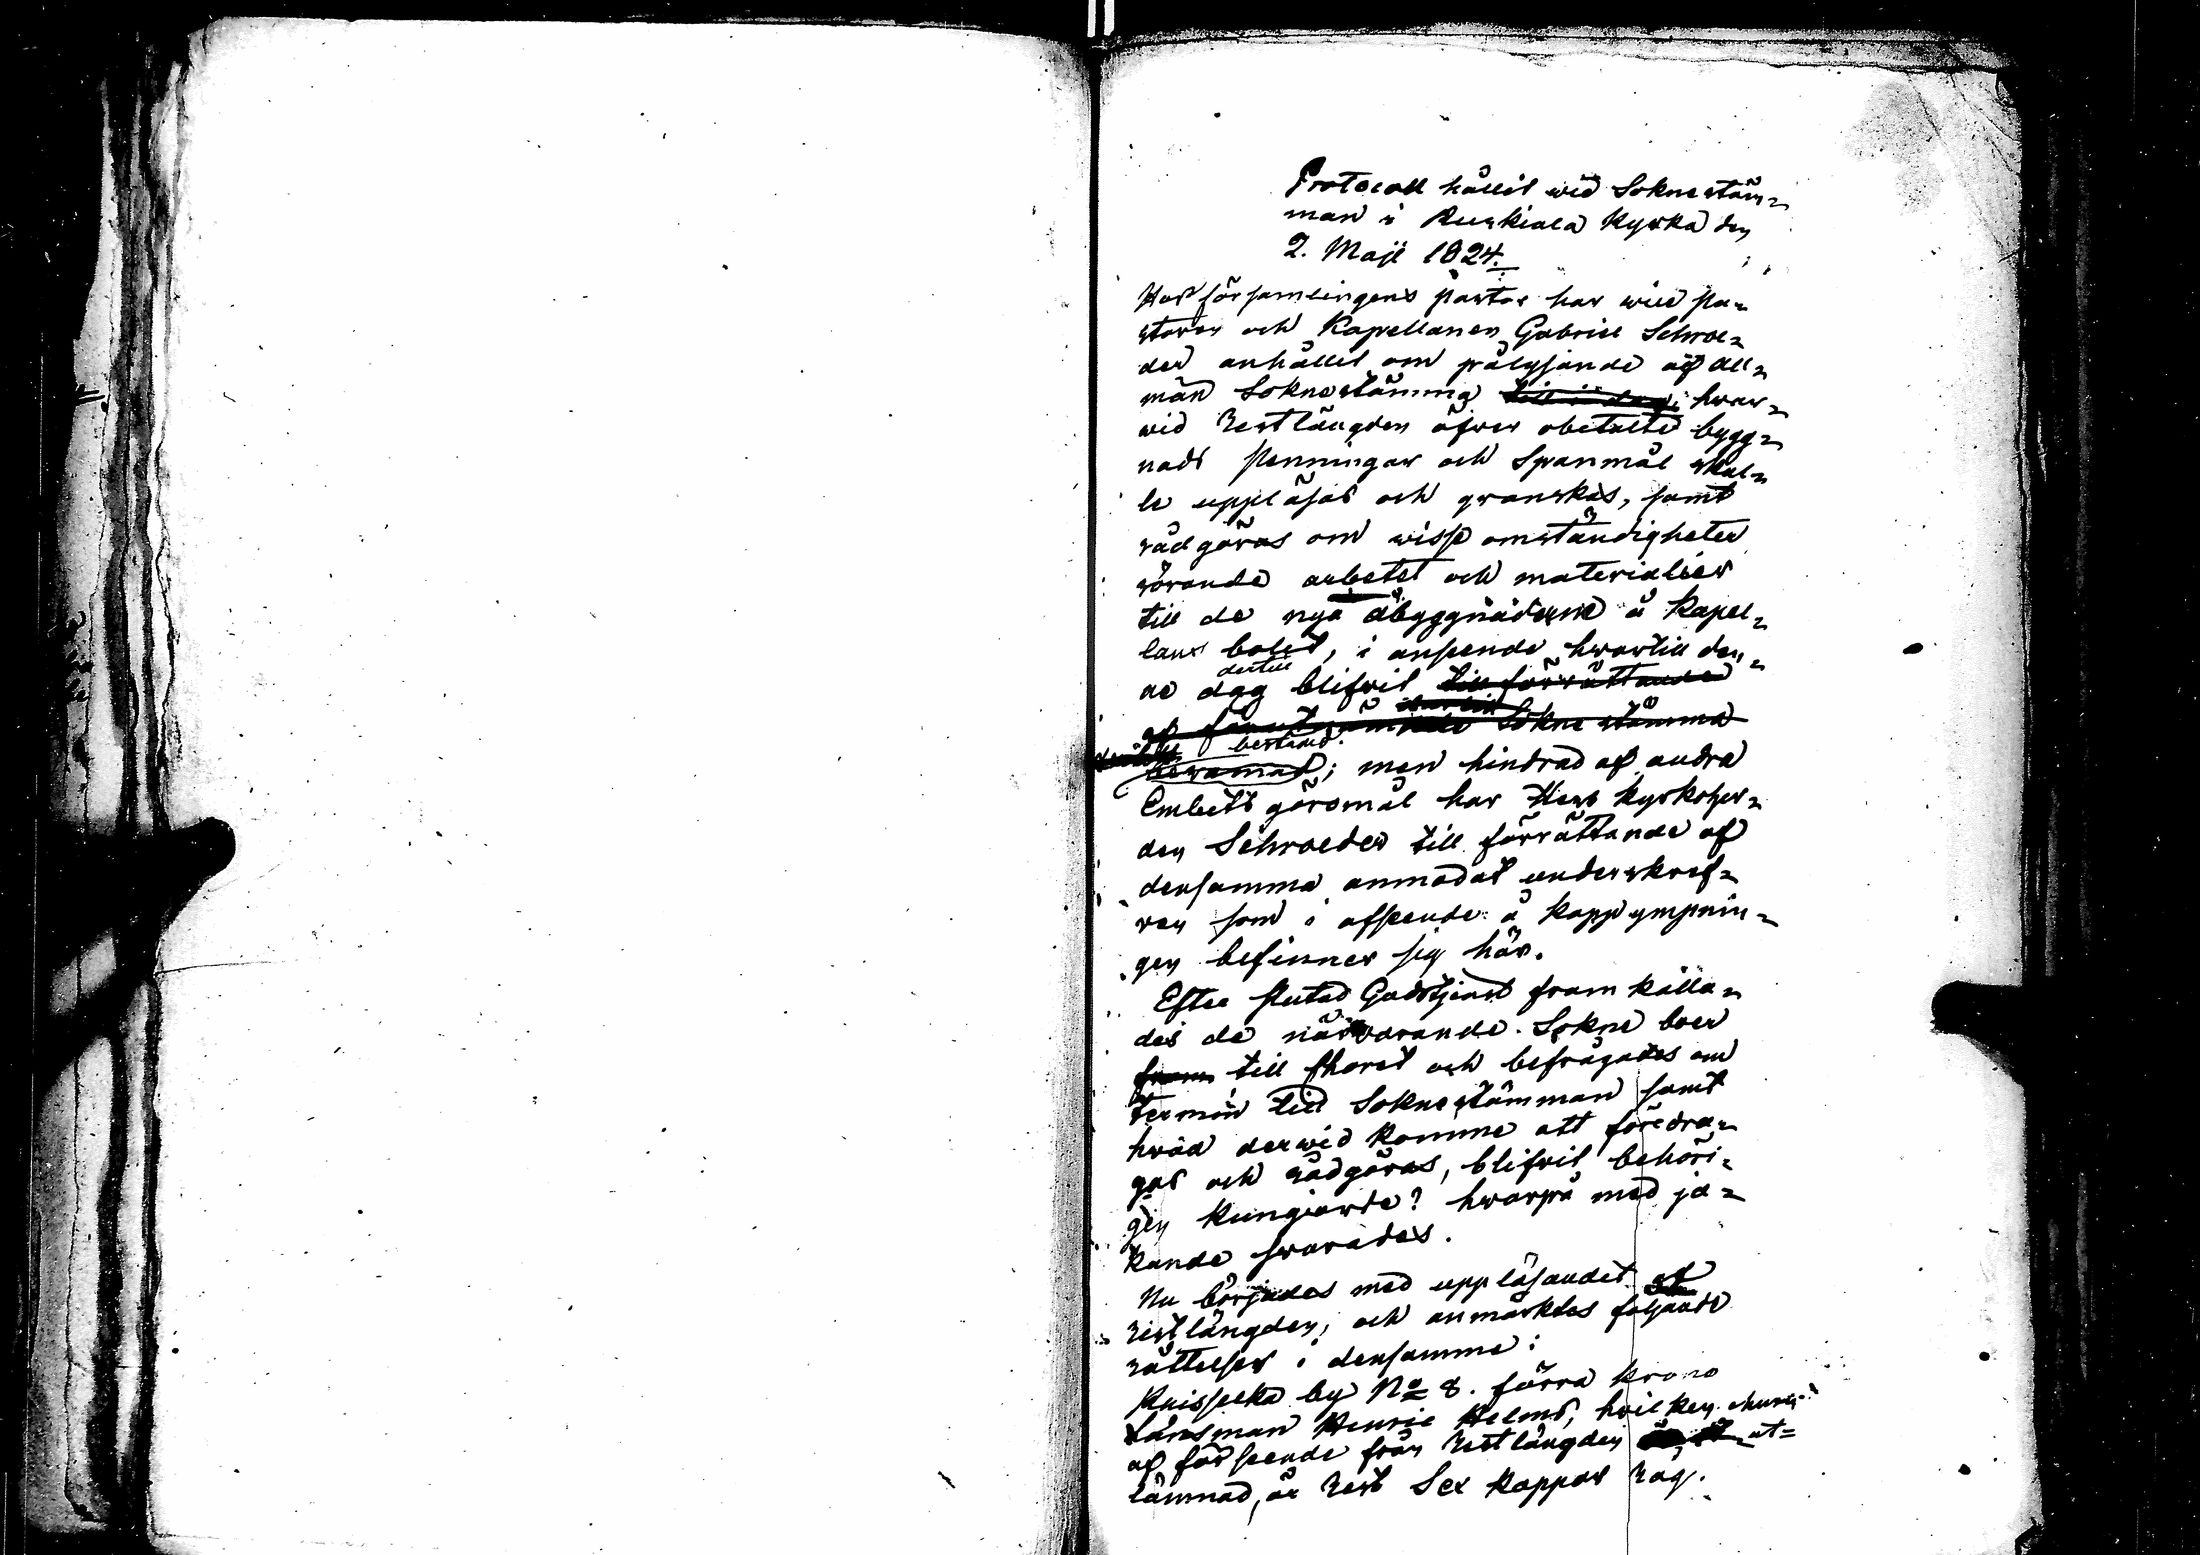 Protocoll hållit wid Soknestäm=
man i Ruskiala Kyrka den
2. Maji 1824.
Hos församlingens pastor har wice pa=
storen och Kapellanen Gabriel Schroe=
der anhållit om pålysande af all=
män Soknestämma till i dag; hwar=
wid Restlängden öfwer obetalte bygg=
nads Penningar och Spanmål skul=
le uppläsas och granskas, samt
rådgöras om wisse omständigheter
rörande arbetet och materialier
till de nya åbyggnaderne å Kapel=
lans bolet, i anseende hwartill den=
dertill
ne dag blifwit till förrättande
af Sokne stämma
bestämd
beramad; men hindrad af andra
Embets göromål har Herr Kyrkoher=
den Schroeder till förrättande af
densamma anmodat underskref=
ven som i afseende å koppympnin=
gen befinner sig här.
Efter slutad Gudstjenst framkalla=
des de närwarande Sokne boer
fram till Choret och befrågades om
termin till Soknestämman samt
hwad derwid komme att föredra=
gas och rådgöras, blifwit behöri=
gen kungjorde? hwarpå med ja=
kande swarades.
Nu börjades med uppläsandet af
restlängden, och anmärktes foljande
rättelser i densamme:
Ruisselka by No 8. förra krono
Länsman Henric Helmes, hvilken
af förseende från Restlängden ut=
lämnad, är rest Sex kappar råg.